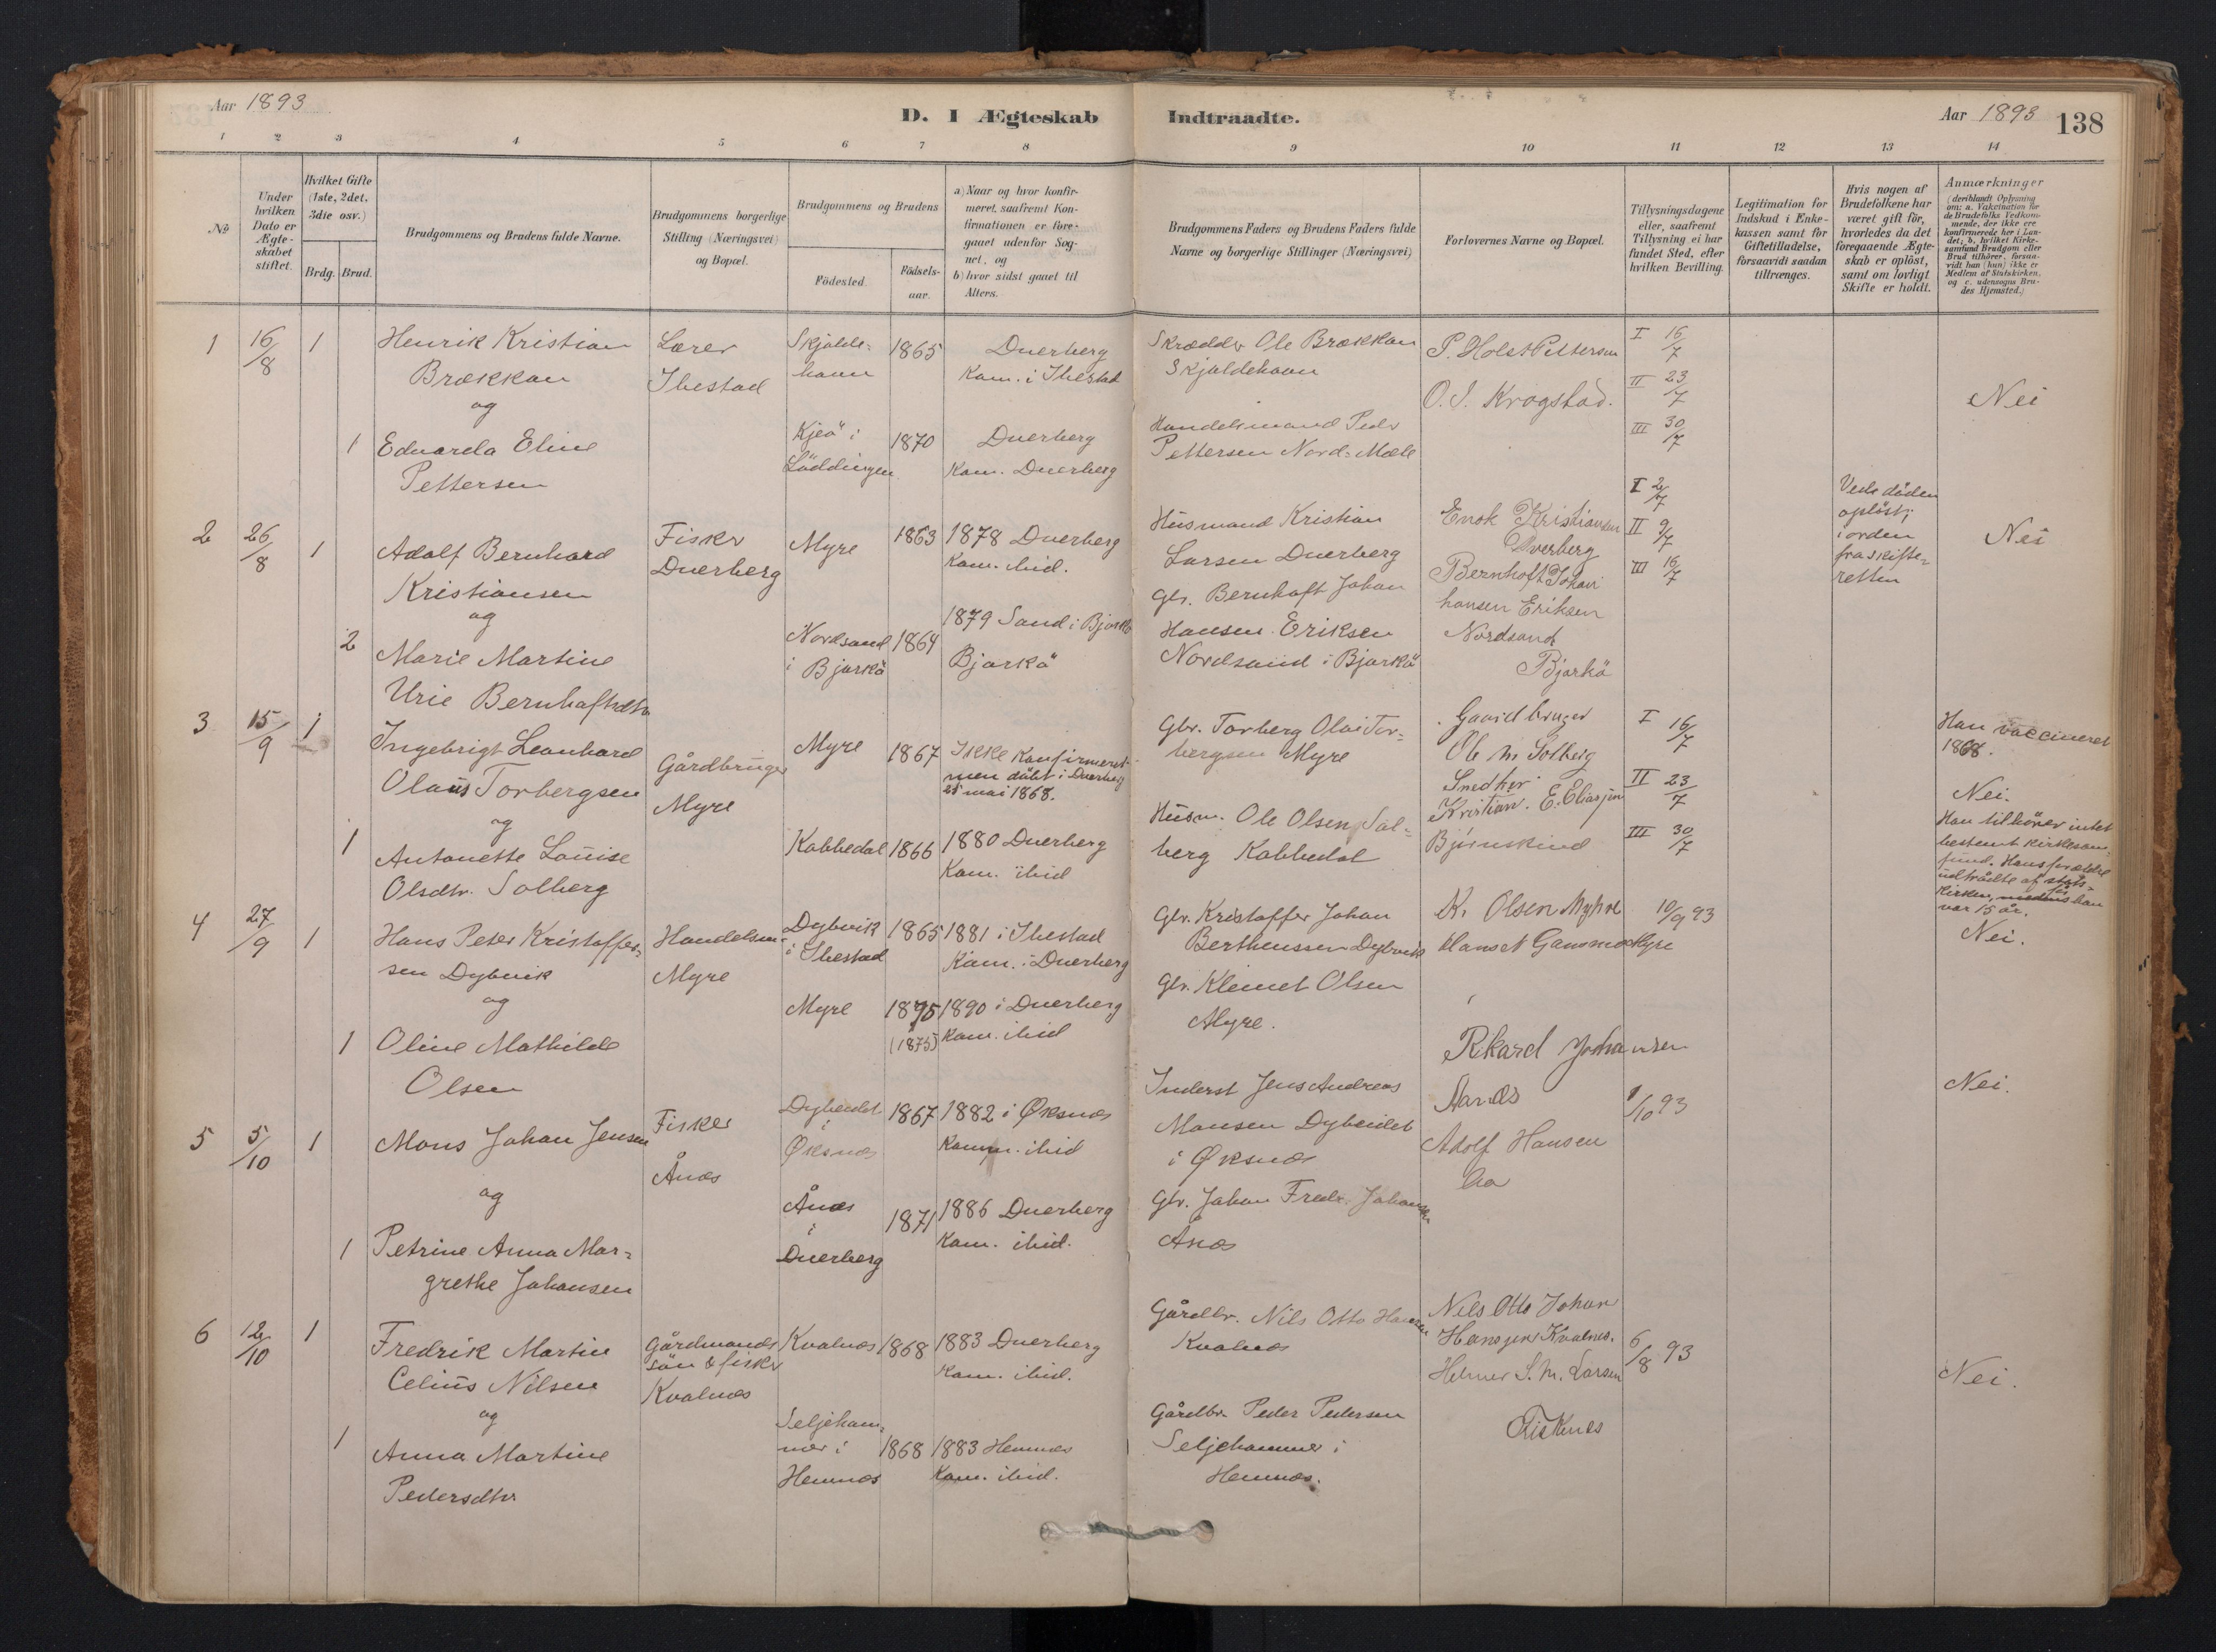 Aar 1893
D. I Ægteskab Indtraadte.
Aar 1893
138
1 2 3 4 5 6 7 8 9 10 11 12 13 14
№
Under hvilken Dato er Ægte- skabet stiftet.
Hvilket Gifte (1ste, 2det, 3die osv.)
Brdg. Brud.
Brudgommens og Brudens fulde Navne.
Brudgommens borgerlige Stilling (Næringsvei) og Bopæl.
Brudgommens og Brudens
Födested.
Födsels- aar.
a) Naar og hvor konfir-
meret, saafremt Kon-
firmationen er fore-
gaaet udenfor Sog-
net, og
b) hvor sidst gaaet til
Alters.
Brudgommens Faders og Brudens Faders fulde
Navne og borgerlige Stillinger (Næringsvei)
Forlovernes Navne og Bopæl.
Tillysningsdagene
eller, saafremt
Tillysning ei har
fundet Sted, efter
hvilken Bevilling.
Legitimation for
Indskud i Enke-
kassen samt for
Giftetilladelse,
forsaavidt saadan
tiltrænges.
Hvis nogen af
Brudefolkene har
været gift før,
hvorledes da det
foregaaende Ægte-
skab er oplöst,
samt om lovligt
Skifte er holdt.
Anmærkninger
(deriblandt Oplysning
om: a. Vakcination for
de Brudefolks Vedkom-
mende, der ikke ere
konfirmerede her i Lan-
det; b. hvilket Kirke-
samfund Brudgom eller
Brud tilhører, forsaa-
vidt han (hun) ikke er
Medlem af Statskirken,
og c. udensogns Bru-
des Hjemsted.)
1 16/8 1
Henrik Kristian
Brækkan
og
1 Eduarda Eline
Pettersen
Lærer
Ibestad
Skjolde-
havn
1865
Dverberg
Kom. i Ibestad
Kjeö i
Löddingen
1870
Dverberg
Kom. Dverberg
Skrædder Ole Brækkan
Skjoldehavn
Handelsmand Peder
Pettersen Nord-Mæle
P. Holst Pettersen
O. J. Krogstad.
I 16/7
II 23/7
III 30/7
Nei
2 26/8 1
Adolf Bernhard
Kristiansen
og
2 Marie Martine
Urie Bernhaftsdtr
Fisker
Dverberg
Myre
1863
1878 Dverberg
Kom. ibid.
Nordsand
i Bjarkö
1864
1879 Sand i Bjarkö
Bjarkö
Husmand Kristian
Larsen Dverberg
Gbr. Bernhoft Johan
Hansen Eriksen
Nordsand i Bjarkö
Enok Kristiansen
Dverberg
Bernhoft Johan
hansen Eriksen
Nordsand
Bjarkö
I 2/7
II 9/7
III 16/7
Vede döden
oplöst;
i orden
fra skifte-
retten
Nei
3 15/9 1
Ingebrigt Leonhard
Olaus Torbergsen
og
1 Antonette Louise
Olsdtr. Solberg
Gårdbruger
Myre
Myre
1867
Ikke Konfirmeret
men döbt i Dverberg
25 mai 1868.
Kobbedal
1866
1880 Dverberg
Kom. ibid
Gbr. Torberg Olai Tor-
bergsen Myre
Husm. Ole Olsen Sol-
berg Kobbedal
Gaardbruger
Ole M Solberg
Snedker
Kristian. E. Eliasjen
Bjørnskind
I 16/7
II 23/7
III 30/7
Han vaccineret
1868.
Nei.
Han tilhörer intet
bestemt kirkesam-
fund. Hans forældre
udtrådte af stats-
kirken, før han
var 15 år.
4 27/9 1
Hans Peter Kristoffer-
sen Dybvik
og
1 Oline Mathilde
Olsen
Handelsm.
Myre
Dybvik
i Ibestad
1865
1881 i Ibestad
Kom. i Dverberg
Myre
1875
(1875)
1890 i Dverberg
Kom. ibid
Gbr. Kristoffer Johan
Bertheussen Dybvik
Gbr. Klemet Olsen
Myre.
Kr Olsen Myhre
Hans A Gansmo Myre
10/9 93
Nei.
5 5/10 1
Mons Johan Jensen
og
1 Petrine Anna Mar-
grethe Johansen
Fisker
Ånæs
Dybeidet
i
Øksnæs
1867
1882 i Øksnæs
Komm. ibid
Ånæs
i
Dverberg
1871
1886 Dverberg
Kom. ibid.
Inderst Jens Andreas
Monsen Dybeidet
i Øksnæs
Gbr. Johan Fredr. Johansen
Ånæs
Rikard Johansen
Aanæs
Adolf Hansen
Aa
1/10 93
Nei.
6 12/10 1
Fredrik Martin
Celius Nilsen
og
1 Anna Martine
Pedersdtr
Gårdmands
sön & fisker
Kvalnæs
Kvalnæs
1868
1883 Dverberg
Kom. ibid.
Seljeham-
mer i
Hemnæs
1868
1883 Hemnæs
Kom. ibid.
Gårdbr. Nils Otto Hansen
Kvalnæs
Gårdbr. Peder Pedersen
Seljehammer i
Hemnæs.
Nils Otto Johan
Hansjen Kvalnes.
Helmer S. M. Larsen
Fiskenes
6/8 93
Nei.